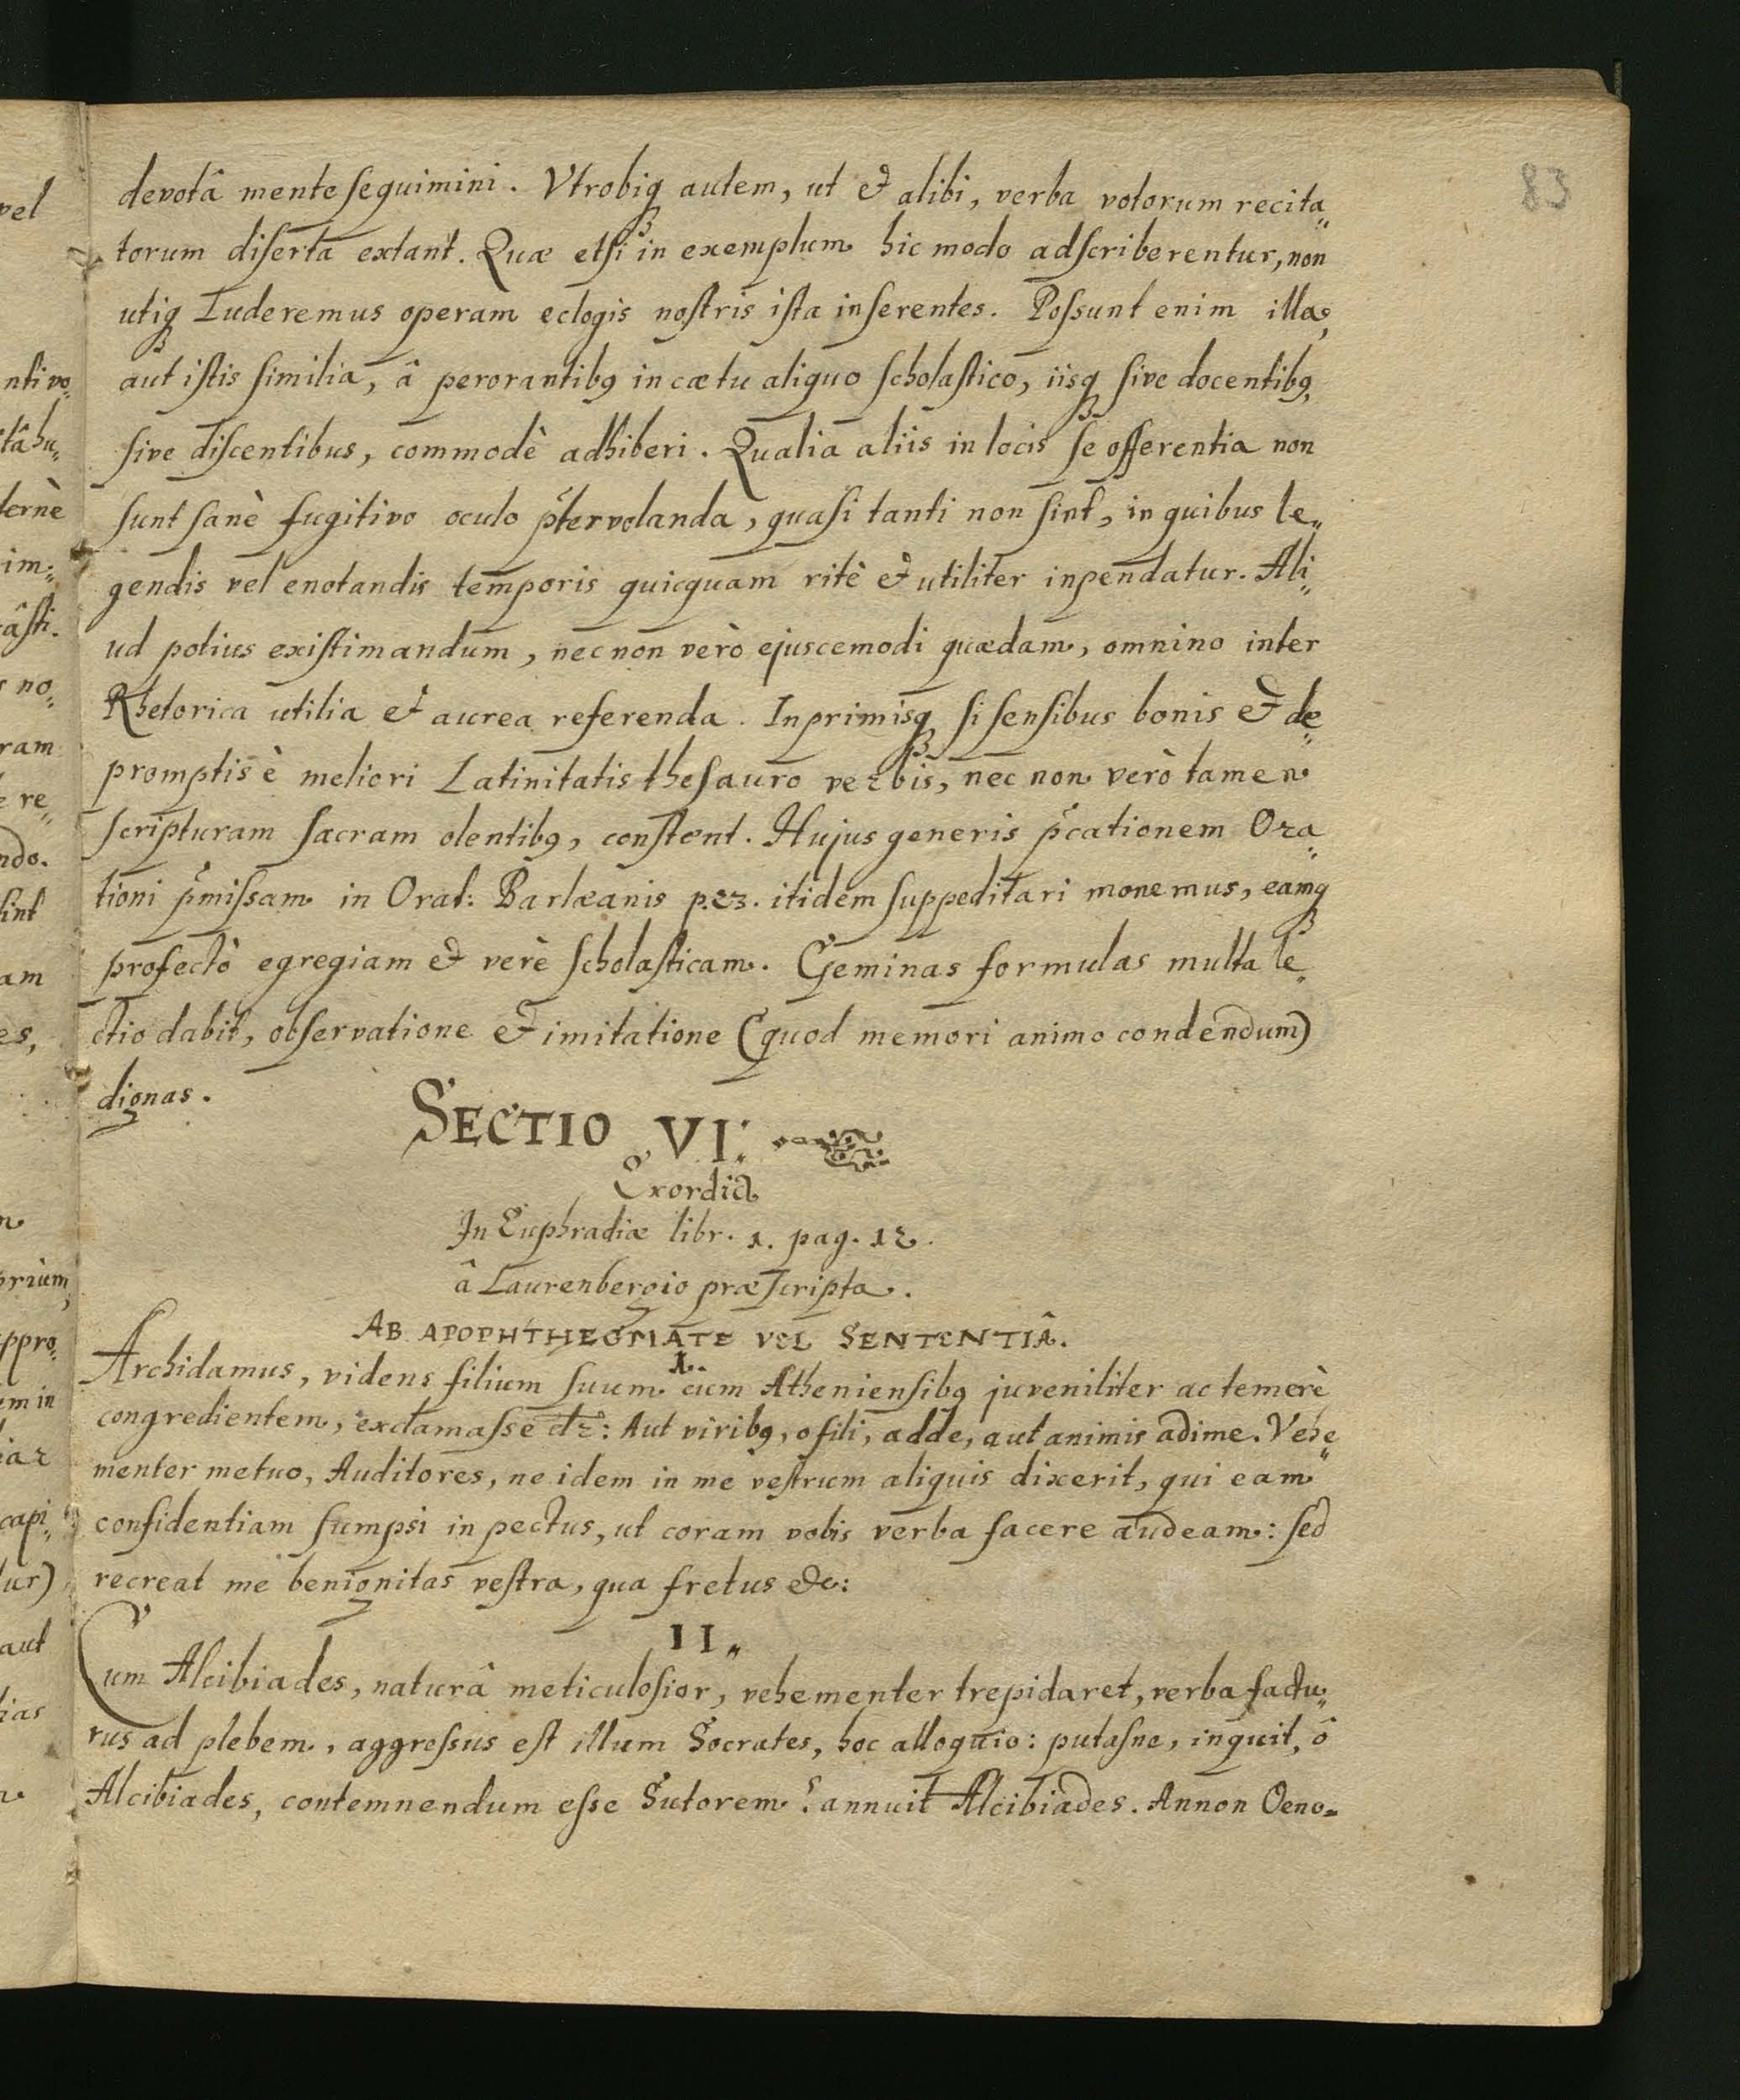 83
devotâ mente sequimini. Vtrobiqꝫ autem, ut et alibi, verba votorum recita„
torum diserta extant. Quæ etsi in exemplum hic modo adscriberentur, non
utiqꝫ luderemus operam eclogis nostris ista inserentes. Possunt enim illa,
aut istis similia, â perorantibꝯ in cætu aliquo scholastico, iisqꝫ sive docentibꝯ,
sive discentibus, commodè adhiberi. Qualia aliis in locis se offerentia non
sunt sanè fugitivo oculo p̃tervolanda, quasi tanti non sint, in quibus le„
gendis vel enotandis temporis quicquam ritè et utiliter inpendatur. Ali„
ud potius existimandum, nec non verò ejuscemodi quædam, omnino inter
Rhetorica utilia et aurea referenda. Inprimisqꝫ si sensibus bonis et de„
promptis è meliori Latinitatis thesauro verbis, nec non verò tamen
scripturam sacram olentibꝯ, constent. Hujus generis p̃cationem Ora„
tioni p̃missam in Orat: Barlæanis p. 23. itidem suppeditari monemus, eamqꝫ
profectò egregiam et verè scholasticam. Geminas formulas multa le„
ctio dabit, observatione et imitatione (quod memori animo condendum)
dignas.
SECTIO VI:
Exordia
In Euphradiæ libr. 1. pag. 12.
â Laurenbergio præscripta.
AB APOPHTHEGMATE VEL SENTENTIÂ.
1.
Archidamus, videns filium suum cum Atheniensibꝯ juveniliter ac temerè
congredientem, exclamasse dr̃: Aut viribꝯ, o fili, adde, aut animis adime. Vehe„
menter metuo, Auditores, ne idem in me vestrum aliquis dixerit, qui eam
confidentiam sumpsi in pectus, ut coram vobis verba facere audeam: sed
recreat me benignitas vestra, qua fretus &c:
II„
Cum Alcibiades, naturâ meticulosior, vehementer trepidaret, verba factu„
rus ad plebem, aggressus est illum Socrates, hoc alloquio: putasne, inquit, ô
Alcibiades, contemnendum esse Sutorem? annuit Alcibiades. Annon Oeno„